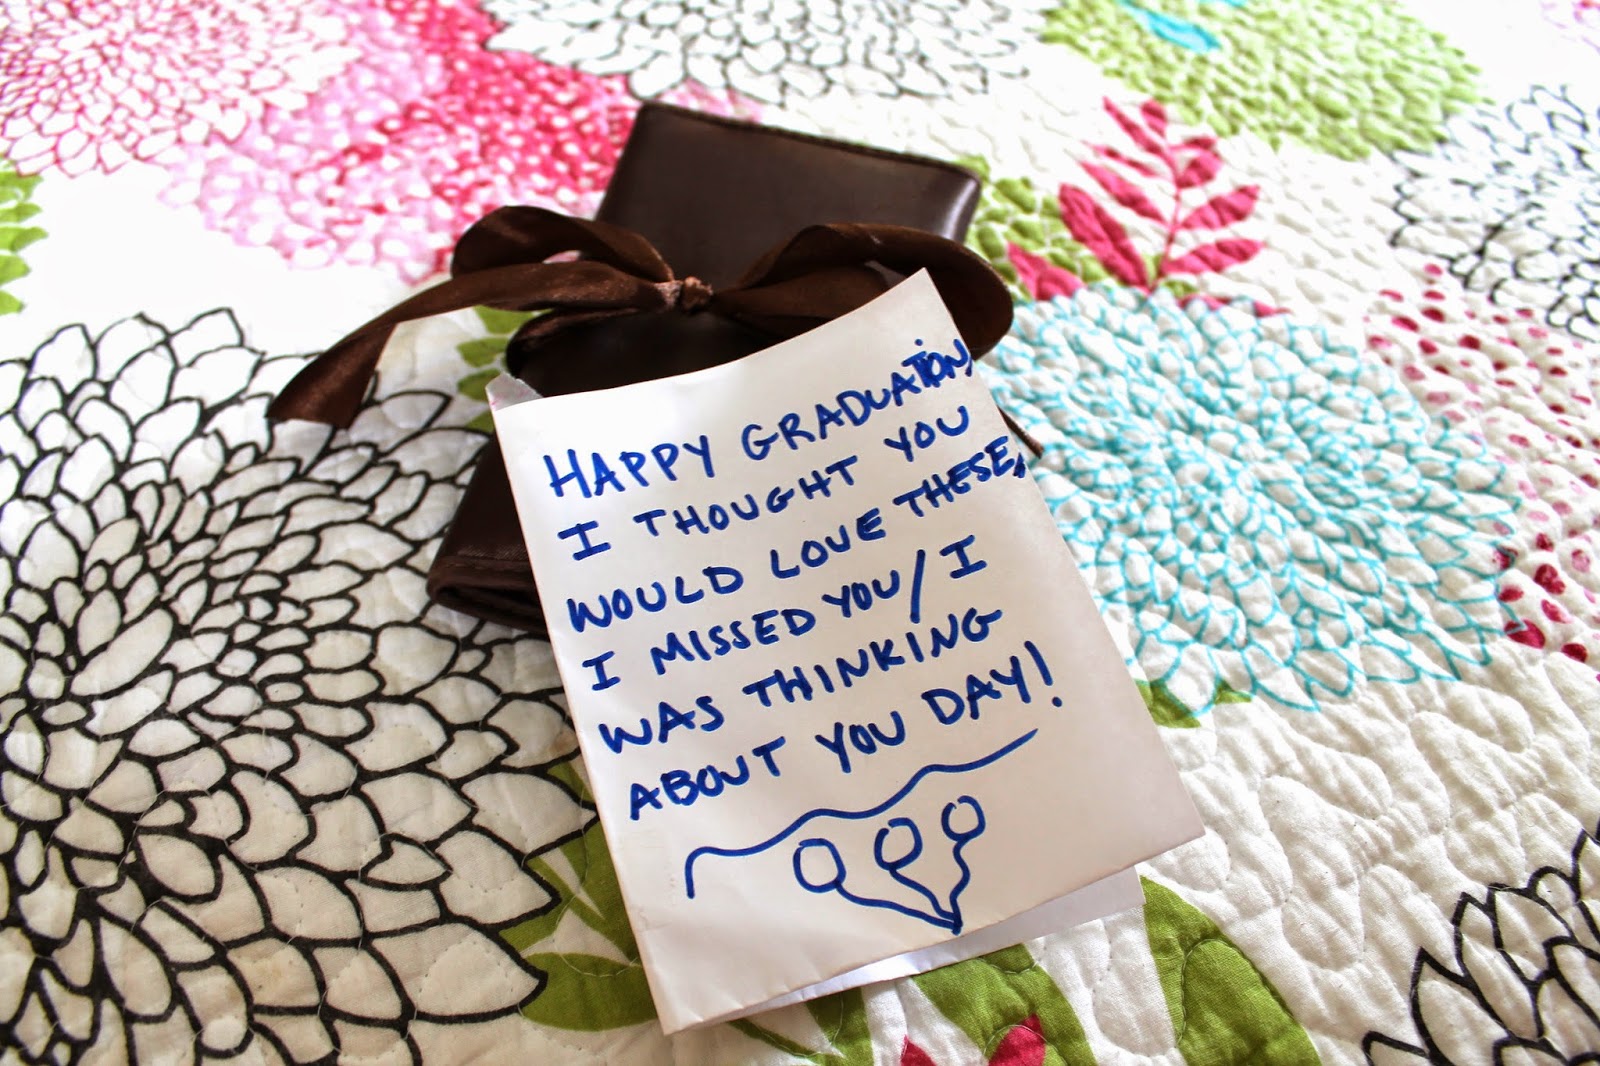 HAPPY GRADUATION,
I THOUGHT YOU
WOULD LOVE THESE,
I MISSED YOU/I
WAS THINKING
ABOUT YOU DAY!